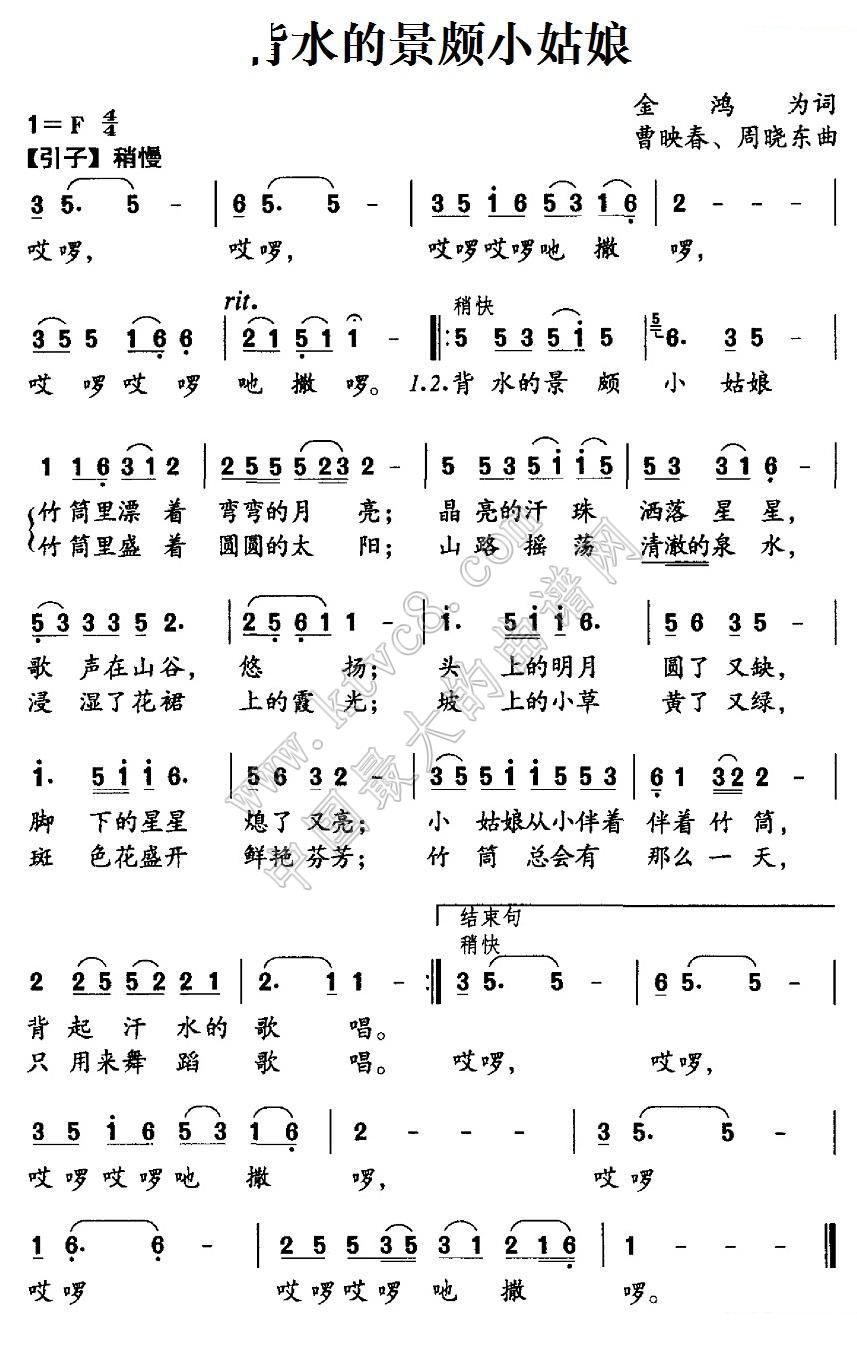 背水的景颇小姑娘
金鸿为词
1=F 4/4
曹映春、周晓东曲
【引子】稍慢
3 5. 5 - | 6 5. 5 - | 3 5 i 6 5 3 1 6 | 2 - - - |
哎啰, 哎啰, 哎啰哎啰吔撒啰,
rit. 稍快
3 5 5 1 6 6 | 2 1 5 1 1 - |: 5 5 3 5 i 5 | 5 6. 3 5 - |
哎啰哎啰吔撒啰。1.2.背水的景颇小姑娘
1 1 6 3 1 2 | 2 5 5 5 2 3 2 - | 5 5 3 5 i i 5 | 5 3 3 1 6 - |
竹筒里漂着弯弯的月亮; 晶亮的汗珠洒落星星,
竹筒里盛着圆圆的太阳; 山路摇荡清澈的泉水,
5 3 3 3 5 2. | 2 5 6 1 1 - | i. 5 i i 6. | 5 6 3 5 - |
歌声在山谷, 悠扬; 头上的明月圆了又缺,
浸湿了花裙上的霞光; 坡上的小草黄了又绿,
i. 5 i i 6. | 5 6 3 2 - | 3 5 5 i 5 5 5 3 | 6 1 3 2 2 - |
脚下的星星熄了又亮; 小姑娘从小伴着伴着竹筒,
斑色花盛开鲜艳芬芳; 竹筒总会有那么一天,
结束句
稍快
2 2 5 5 2 2 1 | 2. 1 1 - :| 3 5. 5 - | 6 5. 5 - |
背起汗水的歌唱。
只用来舞蹈歌唱。哎啰, 哎啰,
3 5 i 6 5 3 1 6 | 2 - - - | 3 5. 5 - |
哎啰哎啰吔撒啰, 哎啰
1 6. 6 - | 2 5 5 3 5 3 1 2 1 6 | 1 - - - |
哎啰 哎啰哎啰吔撒啰。
www.ktvc8.com
中国最大的曲谱网